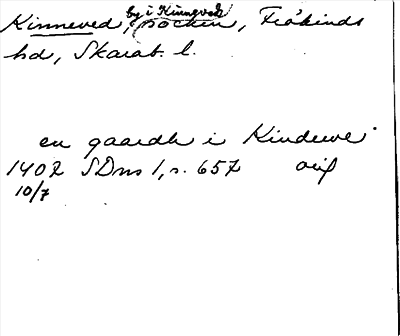 Kinneved, by i Kinneveds socken, Frökinds
hd, Skarab. l.
en gaardh i Kindewe
1402 SDns 1, s. 657 orig
10/7